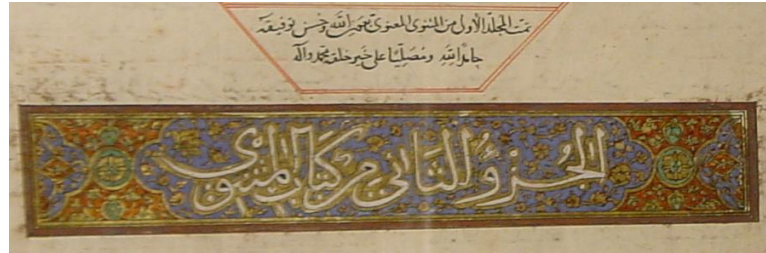 تمت المجلد الاول من المثنوی المعنوی بعون الله وحسن توفیقه
حامدا لله ومصلیا علی خیر خلقه محمد وآله
الجُزوُ الثانی من کتاب المثنوی